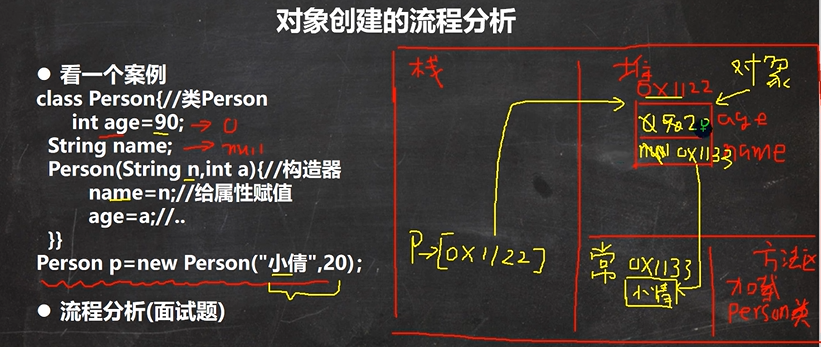 对象创建的流程分析
● 看一个案例
class Person{//类Person
int age=90; → 0
String name; → null
Person(String n,int a){//构造器
name=n;//给属性赋值
age=a;//..
}}
Person p=new Person("小倩",20);
● 流程分析(面试题)
栈
P→[0X1122]
堆
对象
0X1122
0 90 20 age
null 0X1133 name
常 0X1133
小倩
方法区
加载
Person类